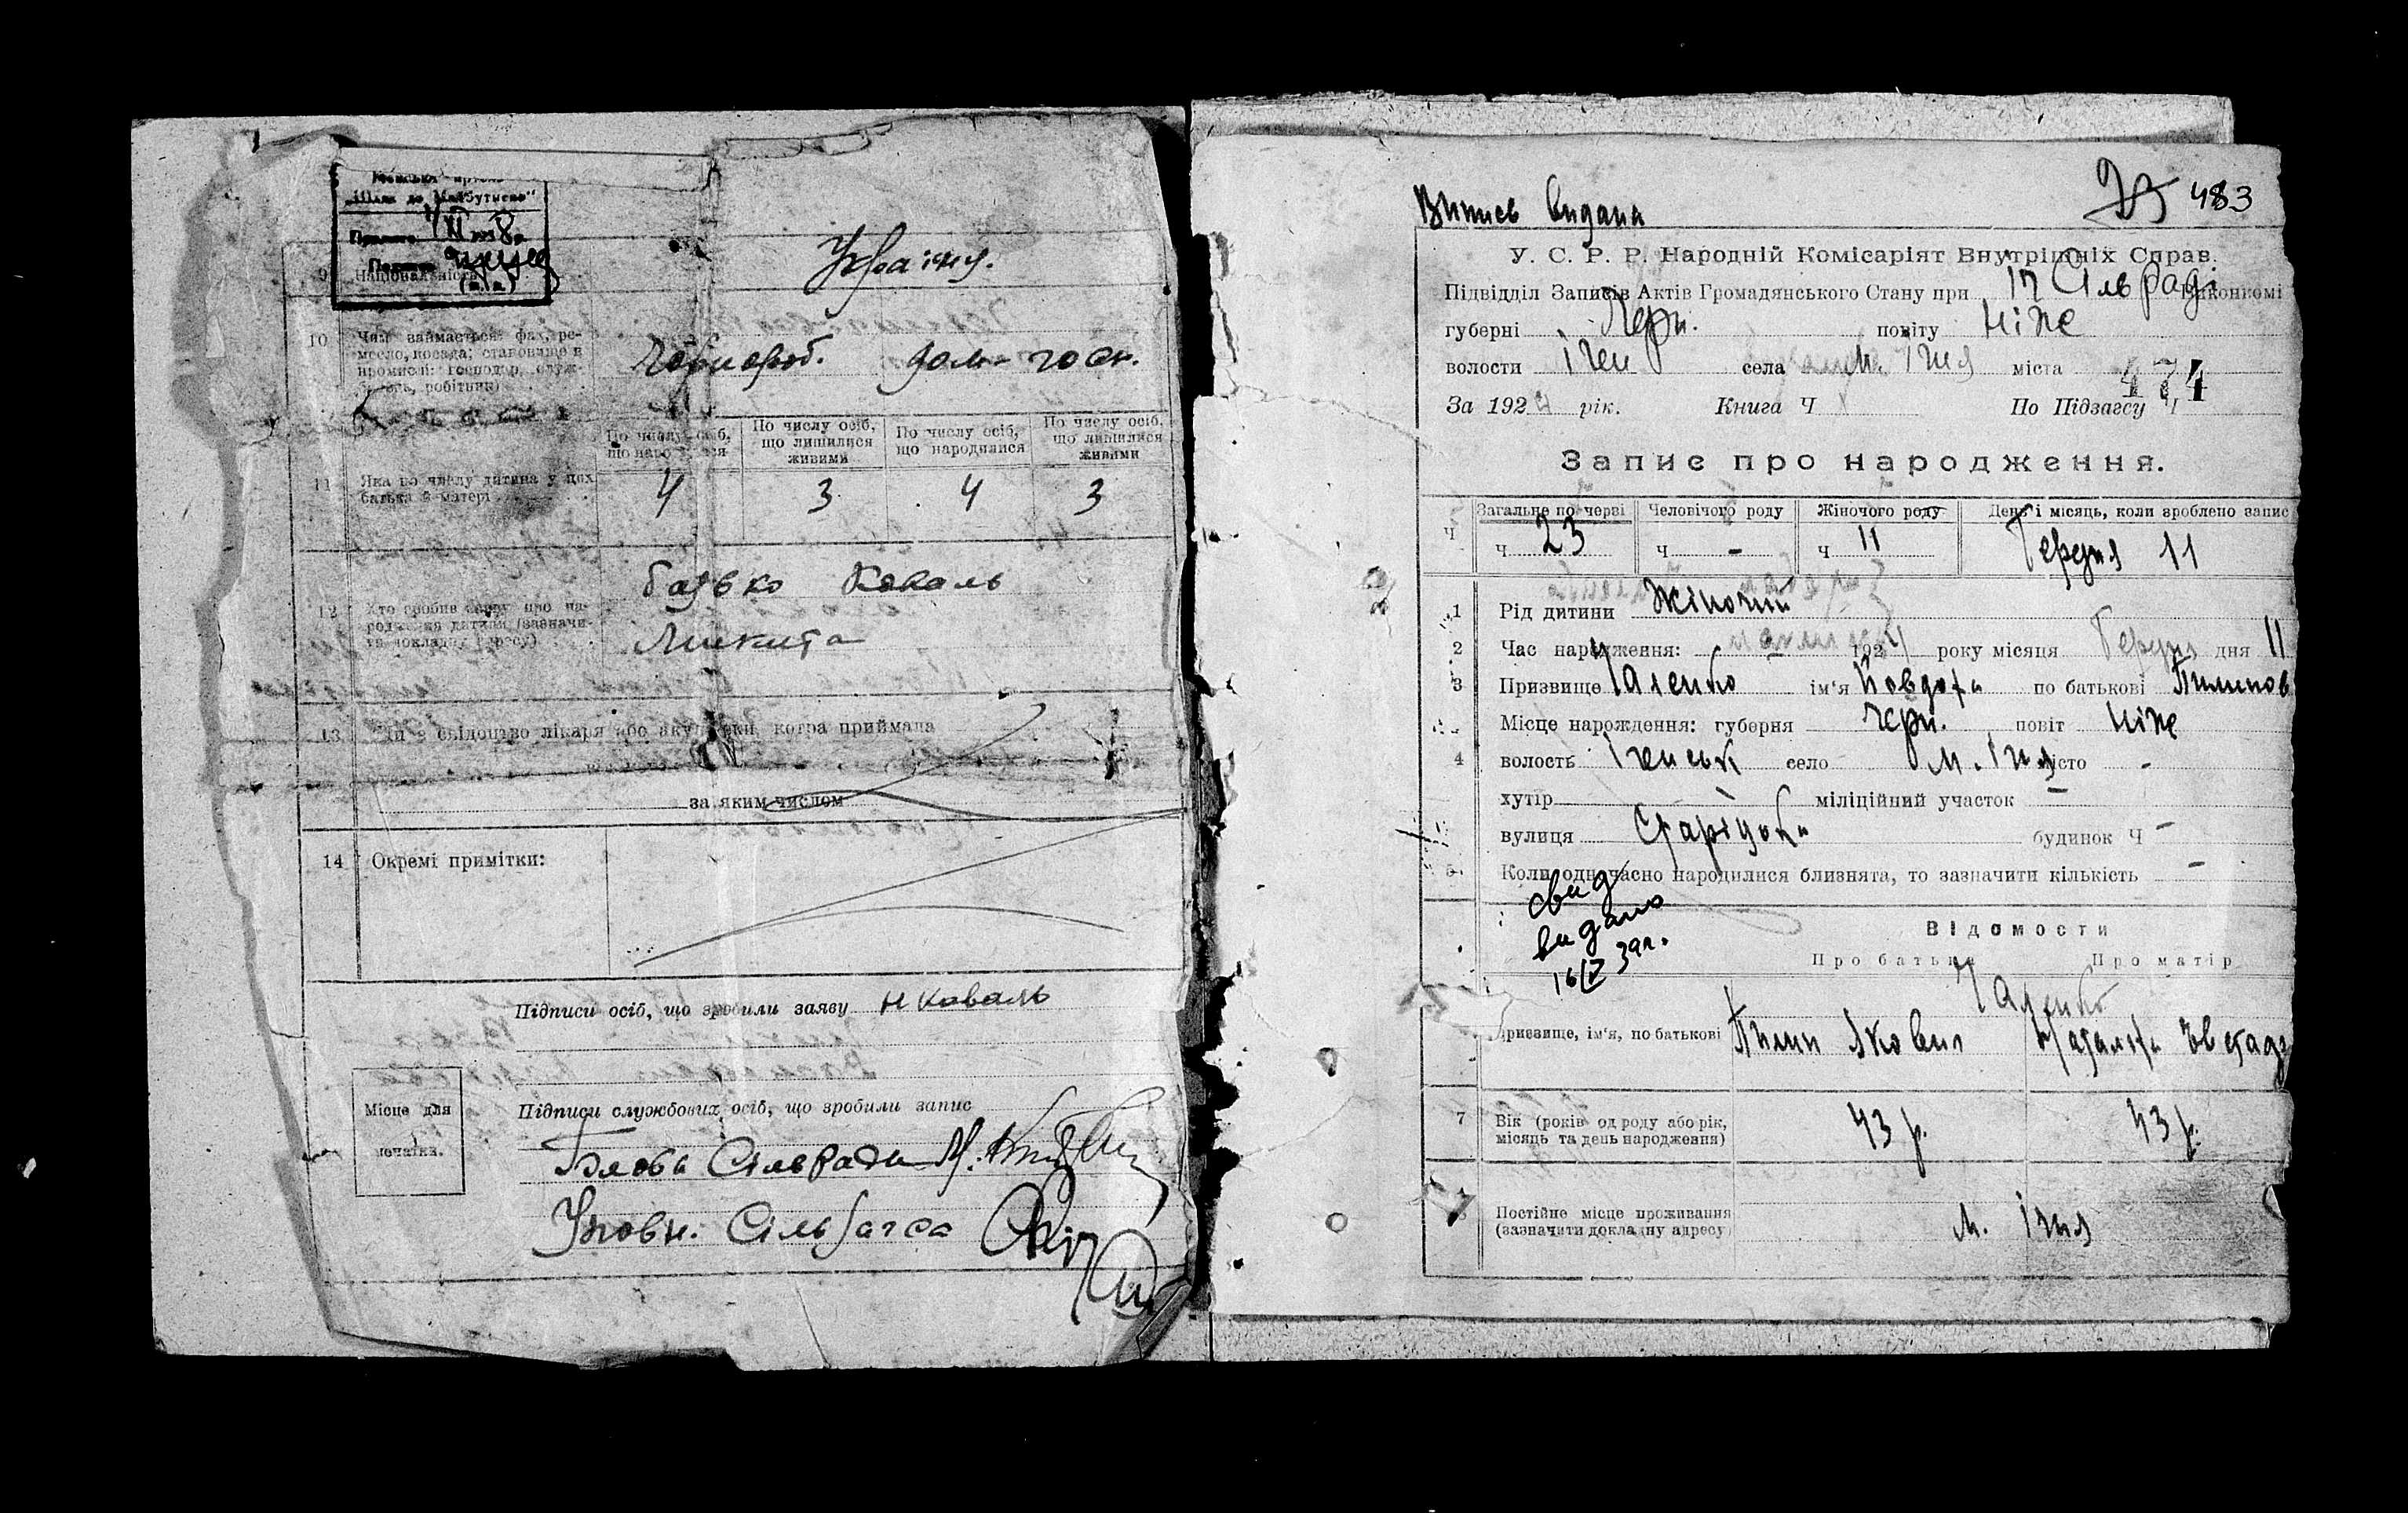 „Шлях до Майбутнєго"
9 Національність
Україну.
10 Чим займається: фах, ре-
месло, посада; становище в
промислі: господар, служ-
бовець, робітник)
Хлібороб. дом-госп.
По числу осіб, що народилися
По числу осіб, що лишилися живими
По числу осіб, що народилися
По числу осіб, що лишилися живими
11 Яка по числу дитина у цих
батька й матері
4 3 4 3
12 Хто зробив заяву про на-
родження дитини (зазначи-
ти докладну адресу)
батько Коваль
Микита
13 Чи є свідоцтво лікаря або акушерки, котра приймала
за яким числом
14 Окремі примітки:
Підписи осіб, що зробили заяву Н Коваль
Місце для
печатки.
Підписи службових осіб, що зробили запис
Голова Сільради М.
Уповн.
Випись видана
483
У. С. Р. Р. Народній Комісаріят Внутрішніх Справ.
Підвідділ Записів Актів Громадянського Стану при Іч Сільраді Виконкомі
губерні Черн. повіту Ніже
волости Ічен села м. Ічня міста
474
За 1924 рік. Книга Ч По Підзагсу Ч
Запис про народження.
Ч Загальне по черві Человічого роду Жіночого роду День і місяць, коли зроблено запис
ч 23 ч - ч 11 Грудня 11
1 Рід дитини Жіночий
2 Час народження: 1924 року місяця Грудня дня 11
3 Призвище Чаленко ім'я Човдоха по батькові Пилипов
4 Місце народження: губерня Черн. повіт Ніже
волость Іченські село м. Ічня місто -
хутір - міліційний участок -
вулиця будинок Ч -
5 Коли одночасно народилися близнята, то зазначити кількість -
свид
видано
16/V 39р.
Відомости
Про батька Про матір
Чаленко
призвище, ім'я, по батькові Пилип Якович Наталія
7 Вік (років од роду або рік,
місяць та день народження)
43 р. 43 р.
8 Постійне місце проживання
(зазначити докладну адресу)
м. Ічня